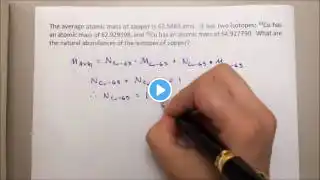 The average atomic mass of copper is 63.5463 amu. It has two isotopes: ⁶³Cu has
an atomic mass of 62.929598, and ⁶⁵Cu has an atomic mass of 64.927790. What are
the natural abundances of the isotopes of copper?
N Cu-63 · M Cu-63 + N Cu-65 · M
N Cu-63 + N Cu = 1
∴ N Cu-65 =